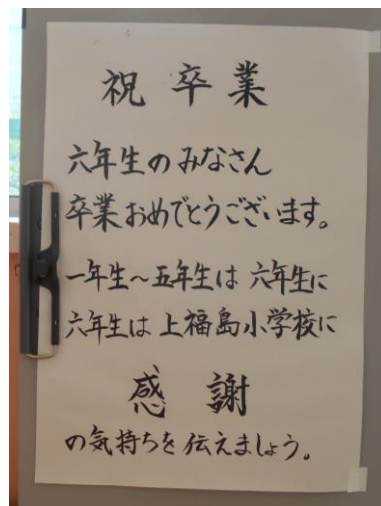 祝 卒 業
六年生のみなさん
卒業おめでとうございます。
一年生～五年生は 六年生に
六年生は 上福島小学校に
感 謝
の気持ちを伝えましょう。